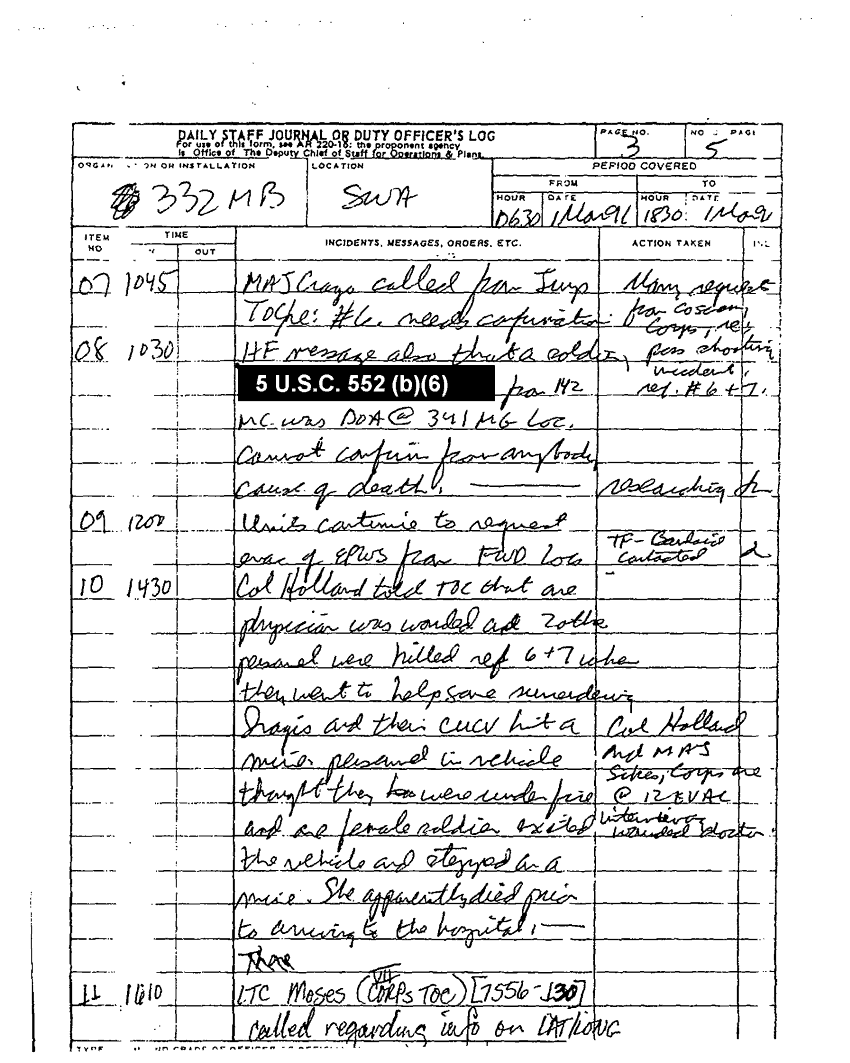 DAILY STAFF JOURNAL OR DUTY OFFICER'S LOG
For use of this form, see AR 220-15; the proponent agency
is Office of The Deputy Chief of Staff for Operations & Plans.
PAGE NO.
3
NO PAGE
5
ORGAN ON OR INSTALLATION
332 MB
LOCATION
SWA
PERIOD COVERED
FROM
TO
HOUR
0630
DATE
1 Mar 91
HOUR
1830
DATE
1 Mar 9
ITEM NO
TIME
OUT
INCIDENTS, MESSAGES, ORDERS, ETC.
ACTION TAKEN
07 1045 MAJ called from Jump
TOC re: #6. needs confirmation.
Many request
from Coscom,
Corps, ref
poss shooting
incident,
ref. # 6 + 7.
08 1030 HF message also that a soldier,
5 U.S.C. 552 (b)(6) from 142
MC was DOA @ 341 MG Loc.
Cannot confirm from anybody
cause of death.
researching
09 1200 Units continue to request
evac of EPWS from FWD locs
TF-
Contacted
10 1430 Col Holland told TOC that one
physician was wounded and 2 other
personnel were killed ref 6+7 when
they went to help some surrendering
Iraqis and their CUCV hit a
mine. personnel in vehicle
thought they were under fire
and one female soldier exited
the vehicle and stepped on a
mine. She apparently died prior
to arriving to the hospital.
Col Holland
And MAJ
Sikes, Corps are
@ 12 EVAC
interviewing
wounded doctor.
11 1610 LTC Moses (VII CORPS TOC) [7556-130]
called regarding info on